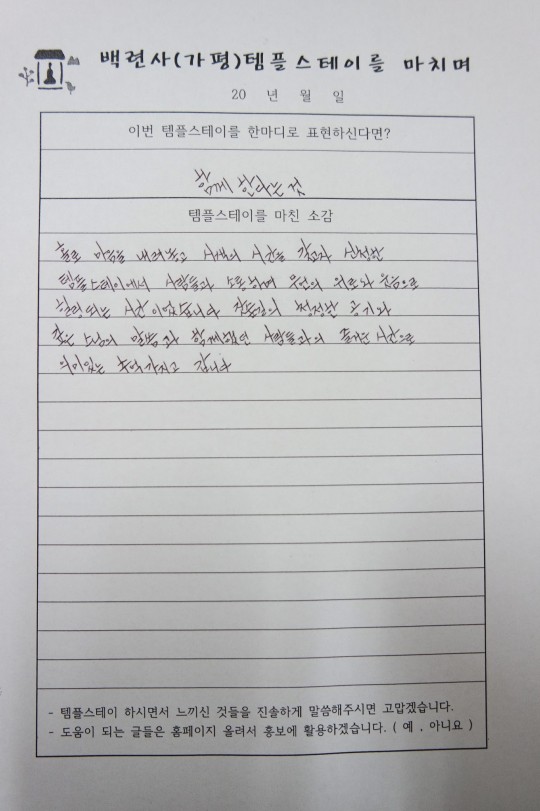 백련사(가평)템플스테이를 마치며
20 년 월 일
이번 템플스테이를 한마디로 표현하신다면?
함께 한다는 것
템플스테이를 마친 소감
홀로 마음을 내려놓고 사색의 시간을 갖고자 신청한
템플스테이에서 사람들과 소통하며 무언의 위로와 웃음으로
힐링되는 시간이었습니다 잣숲길의 청정한 공기와
좋은 스님의 말씀과 함께했던 사람들과의 즐거운 시간으로
의미있는 추억 가지고 갑니다
- 템플스테이 하시면서 느끼신 것들을 진솔하게 말씀해주시면 고맙겠습니다.
- 도움이 되는 글들은 홈페이지 올려서 홍보에 활용하겠습니다. ( 예 , 아니요 )